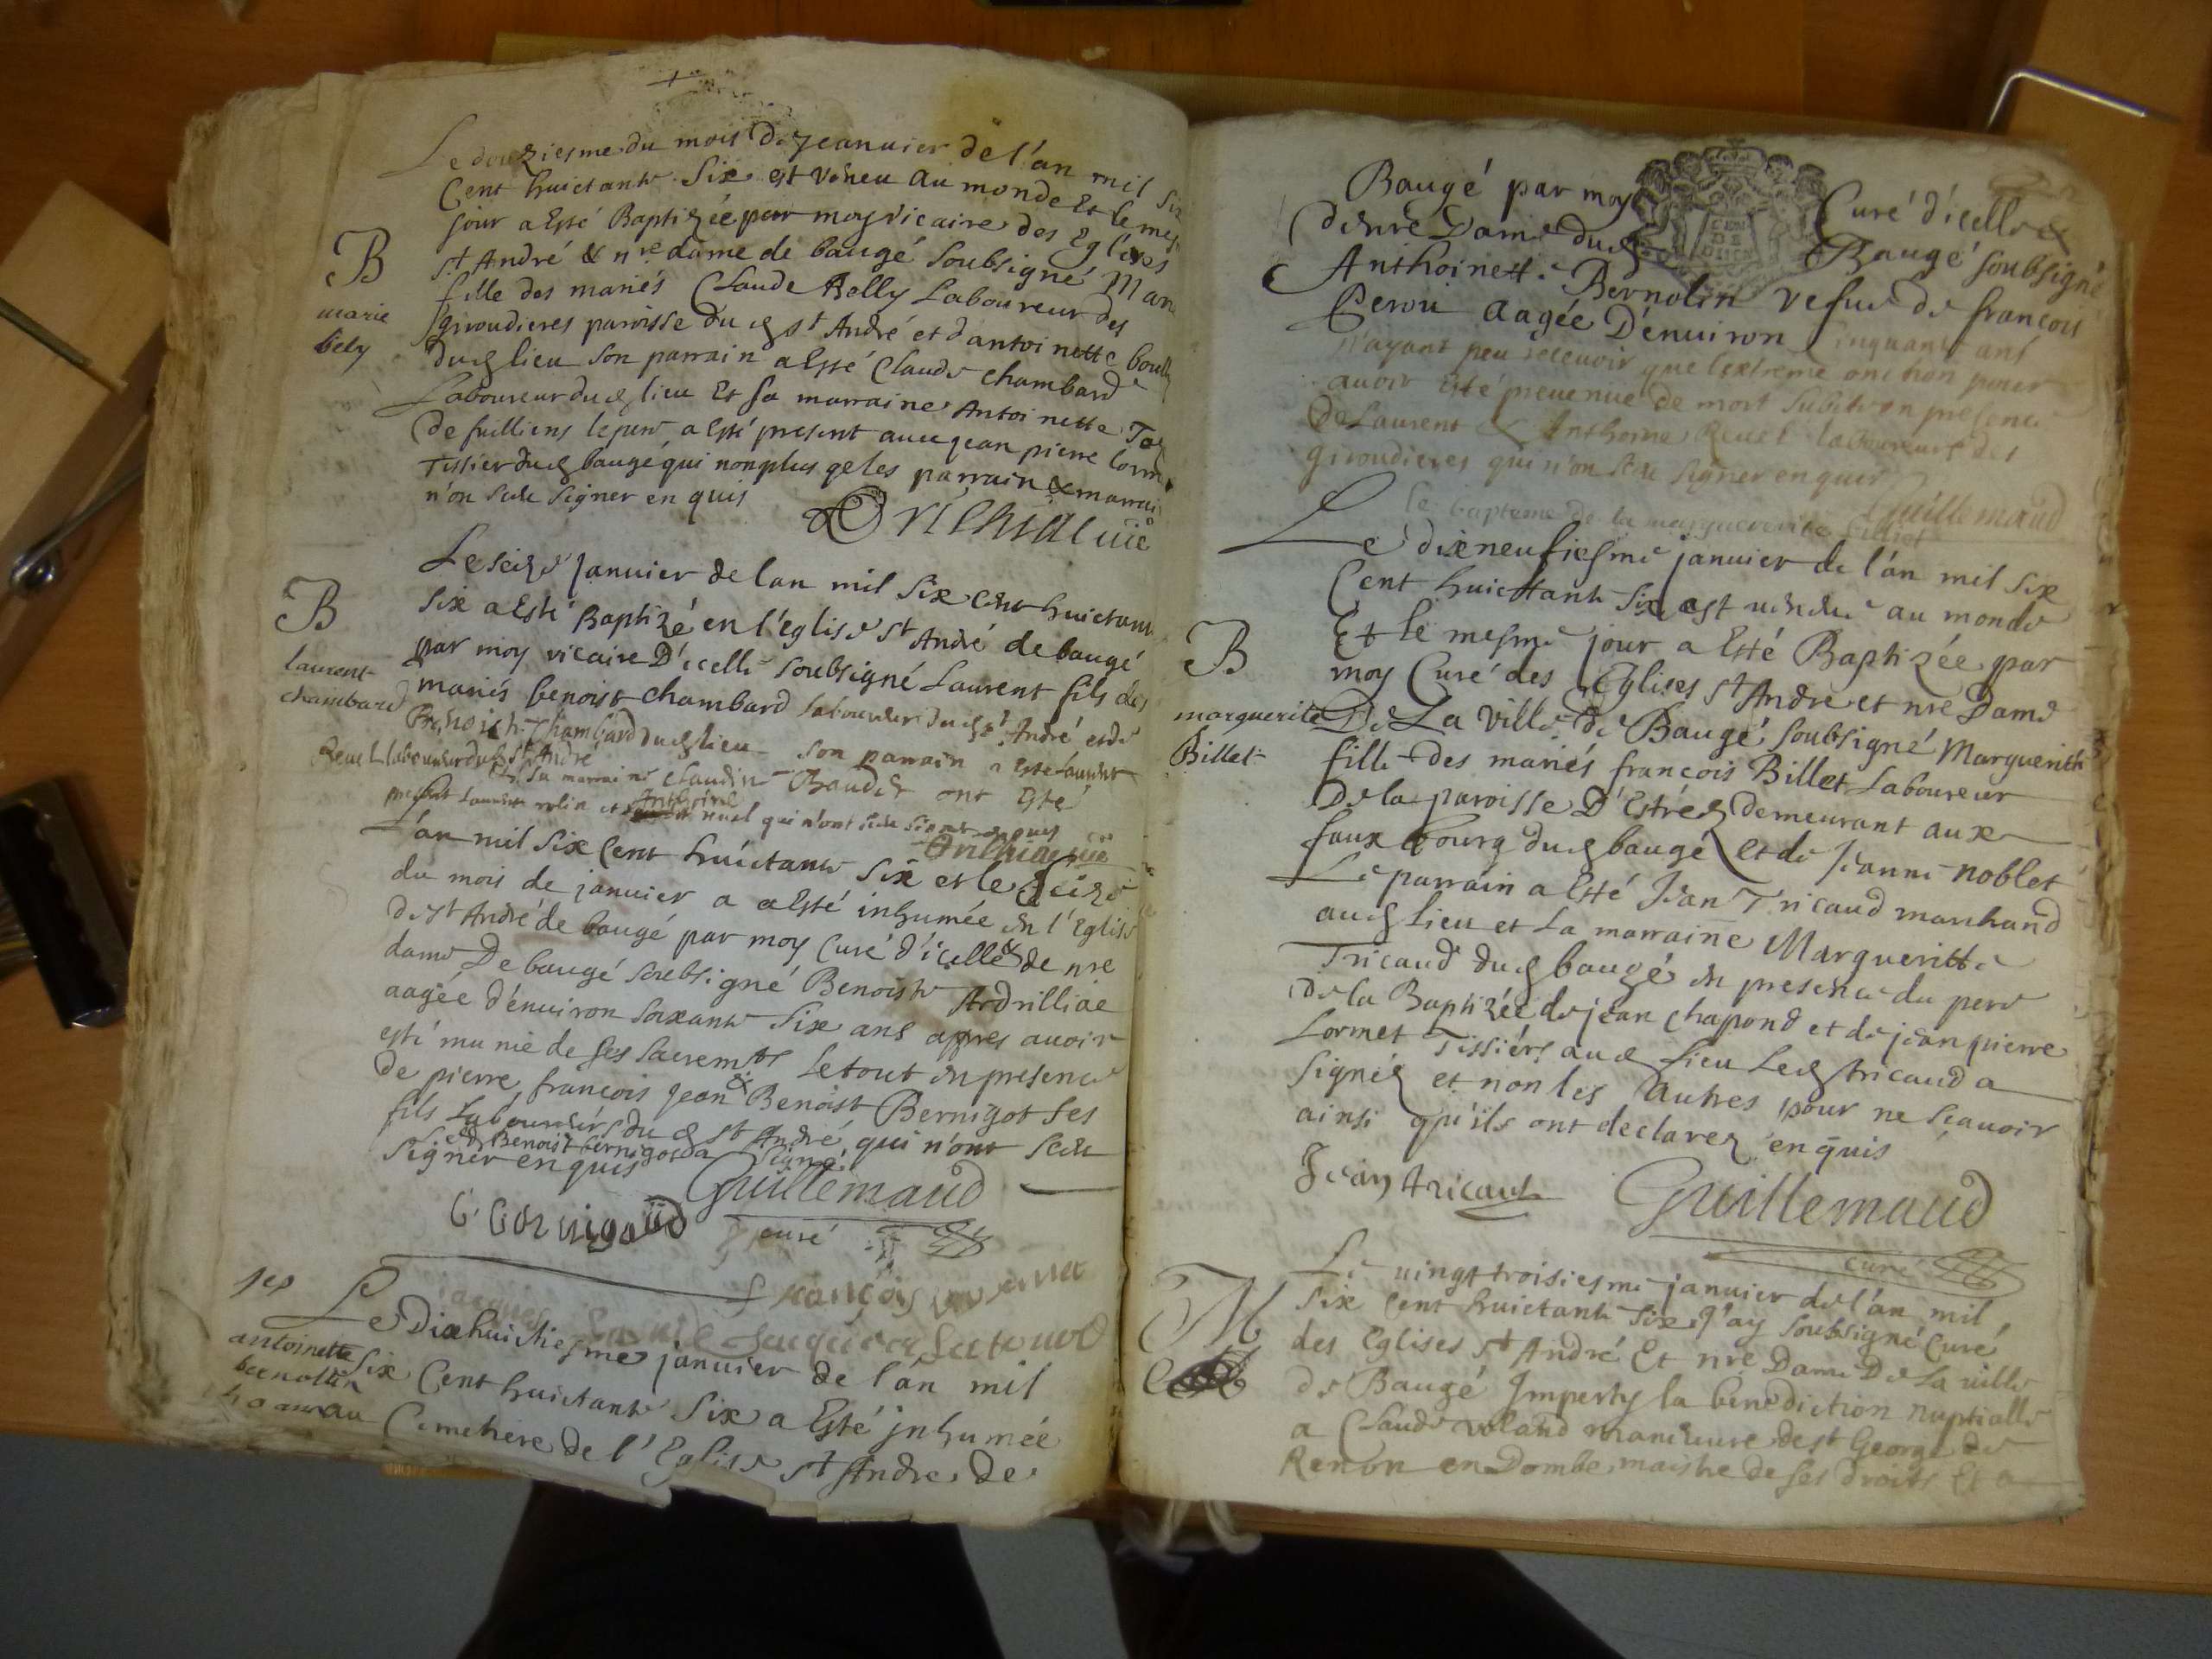 Le douziesme du mois de jeanuier de l'an mil six
Cent huictante six est veneu au monde et le mes
jour a esté Baptizée par moy vicaire des Eglises
St André & nre dame de baugé soubsigné Mari
B
marie
bely
fille des mariés Claude Belly Laboureur des
giroudieres paroisse dud St André et d'antoinette boully
dud lieu son parrain a esté Claude chambard
Laboureur dud lieu Et sa marraine Antoinette
de fuilliens lepere a esté present auec jean pierre lorm
Tissier dud baugé qui non plus qe les parrain & marrai
n'on sceu signer enquis
Le seize januier de l'an mil six cent huictante
B
laurent
chambard
six a esté Baptizé en l'eglise St André de baugé
par moy vicaire D'icelle soubsigné Laurent fils des
mariés benoist chambard laboureur dud St André et de
chambard dud lieu son parrain a esté Laurent
Reuel laboureur dud St André
Et sa marraine Claudine Baudet ont esté
present Laurent rolin et Anthoine reuel qui n'ont sceu signer enquis
L'an mil six Cent huictante six et le seize
du mois de januier a esté inhumée en l'Eglise
de St André de baugé par moy Curé d'icelle & de nre
dame De baugé soubsigné Benoiste Ardrilliae
aagée d'enuiron soixante six ans appres auoir
esté munie de ses sacremts le tout en presence
de pierre, françois jean & Benoist Bernigot ses
fils Laboureurs dud St André qui n'ont sceu
led Benoist bernigot a signé
signer enquis
Guillemaud
curé
sep
antoinette
bernollin
Le Dixhuictiesme januier de l'an mil
six Cent huictante six a esté jnhumée
au Cimetiere de l'Eglise St Andre de
Baugé par moy Curé d'icelle &
de nre Dame dud Baugé soubsigné
Anthoinette Bernolin vefue de françois
Perou aagée D'enuiron Cinquante ans
n'ayant peu receuoir que l'extreme onction pour
auoir esté preuenue de mort subite en presence
De Laurent & Anthoine Reuel laboureurs des
giroudieres qui n'on sceu signer enquis
Guillemaud
le bapteme de la marguerite billiet
Le dixneufiesme januier de l'an mil six
Cent huictante six est venue au monde
Et le mesme jour a esté Baptizée par
B
marguerite
Billet
moy Curé des Eglises St Andre et nre Dame
De La Ville de Baugé soubsigné Margueritte
fille des mariés françois Billet Laboureur
De la paroisse D'Estréez demeurant aux
faux bourg dud baugé et de Jeanne noblet
Le parrain a esté Jean Tricaud marchand
aud lieu et La marraine Margueritte
Tricaud dud baugé en presence du pere
de la Baptizée de jean chapond et de jean pierre
Lormet Tissiers aud lieu Led tricaud a
signéz et non les autres pour ne scauoir
ainsi qu'ils ont declarez enquis
Jean tricaud
Guillemaud
curé
M
Le uingt troisiesme januier de l'an mil
six cent huictante six j'ay soubsigné Curé
des Eglises St André Et nre Dame De La uille
de Baugé Imperty la benediction nuptialle
a Claude voland maneuure de St George de
Renon en Dombe, maistre de ses droits Et a